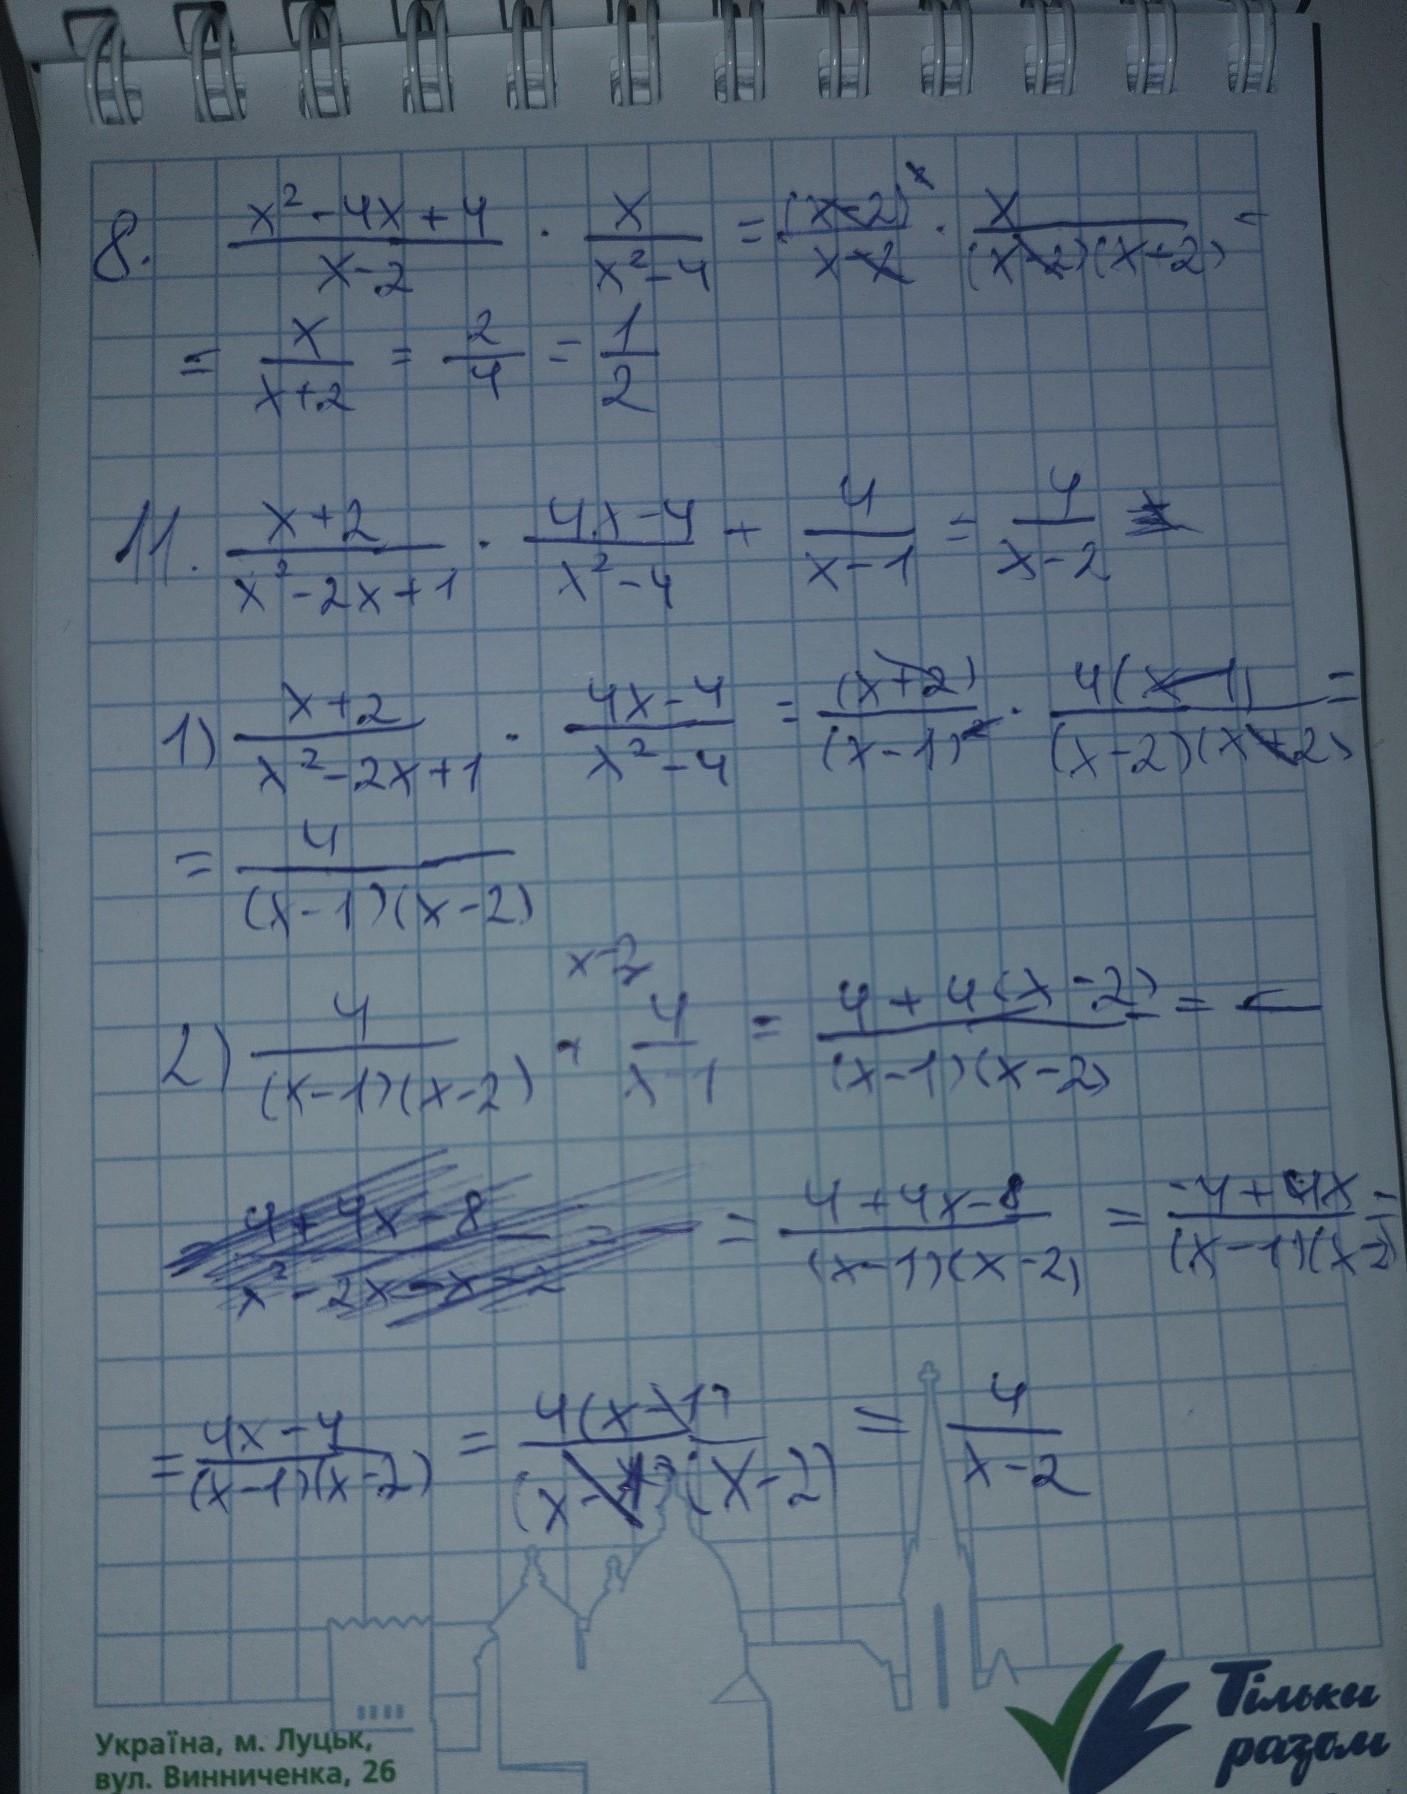 8. (x² - 4x + 4)/(x - 2) · x/(x² - 4) = (x - 2)²/(x - 2) · x/((x - 2)(x + 2)) =
= x/(x + 2) = 2/4 = 1/2
11. (x + 2)/(x² - 2x + 1) · (4x - 4)/(x² - 4) + 4/(x - 1) = 4/(x - 2)
1) (x + 2)/(x² - 2x + 1) · (4x - 4)/(x² - 4) = (x + 2)/(x - 1)² · 4(x - 1)/((x - 2)(x + 2)) =
= 4/((x - 1)(x - 2))
x - 2
2) 4/((x - 1)(x - 2)) + 4/(x - 1) = (4 + 4(x - 2))/((x - 1)(x - 2)) =
= (4 + 4x - 8)/((x - 1)(x - 2)) = (-4 + 4x)/((x - 1)(x - 2)) =
= (4x - 4)/((x - 1)(x - 2)) = 4(x - 1)/((x - 1)(x - 2)) = 4/(x - 2)
Україна, м. Луцьк,
вул. Винниченка, 26
Тільки
разом